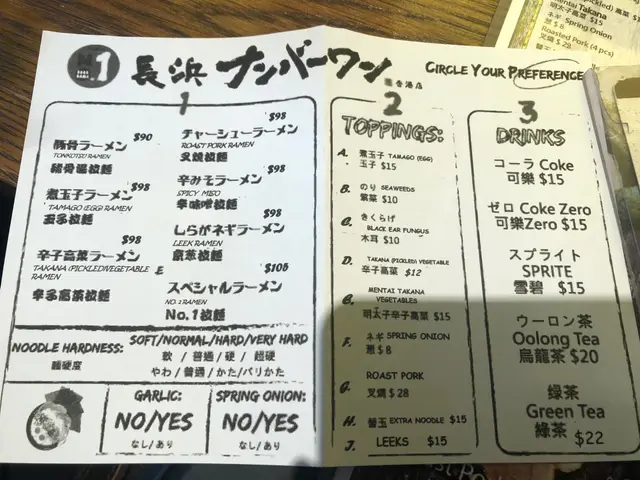 No.1
長浜 ナンバーワン
香港店
CIRCLE YOUR PREFERENCE
1
豚骨ラーメン $90
TONKOTSU RAMEN
豬骨湯拉麵
煮玉子ラーメン $98
TAMAGO (EGG) RAMEN
玉子拉麵
$98
辛子高菜ラーメン
TAKANA (PICKLED)VEGETABLE
RAMEN
辛子高菜拉麵
$98
チャーシューラーメン
ROAST PORK RAMEN
叉燒拉麵
$98
辛みそラーメン
SPICY MISO
辛味噌拉麵
$98
しらがネギラーメン
LEEK RAMEN
京葱拉麵
$106
スペシャルラーメン
NO.1 RAMEN
No.1拉麵
NOODLE HARDNESS:
麵硬度
SOFT/NORMAL/HARD/VERY HARD
軟 / 普通 / 硬 / 超硬
やわ / 普通 / かた/バリかた
GARLIC:
NO/YES
なし/あり
SPRING ONION:
NO/YES
なし/あり
2
TOPPINGS:
A. 煮玉子 TAMAGO (EGG)
玉子 $15
B. のり SEAWEEDS
紫菜 $10
C. きくらげ
BLACK EAR FUNGUS
木耳 $10
D. TAKANA (PICKLED) VEGETABLE
辛子高菜 $12
E. MENTAI TAKANA
VEGETABLES
明太子辛子高菜 $15
F. ネギ SPRING ONION
葱 $8
G. ROAST PORK
叉燒 $28
H. 替玉 EXTRA NOODLE $15
J. LEEKS $15
3
DRINKS
コーラ Coke
可樂 $15
ゼロ Coke Zero
可樂Zero $15
スプライト
SPRITE
雪碧 $15
ウーロン茶
Oolong Tea
烏龍茶 $20
緑茶
Green Tea
綠茶 $22
Takana
明太子高菜 $15
ネギ Spring Onion
葱 $8
Roasted Pork (4 pcs)
叉燒 $28
替玉